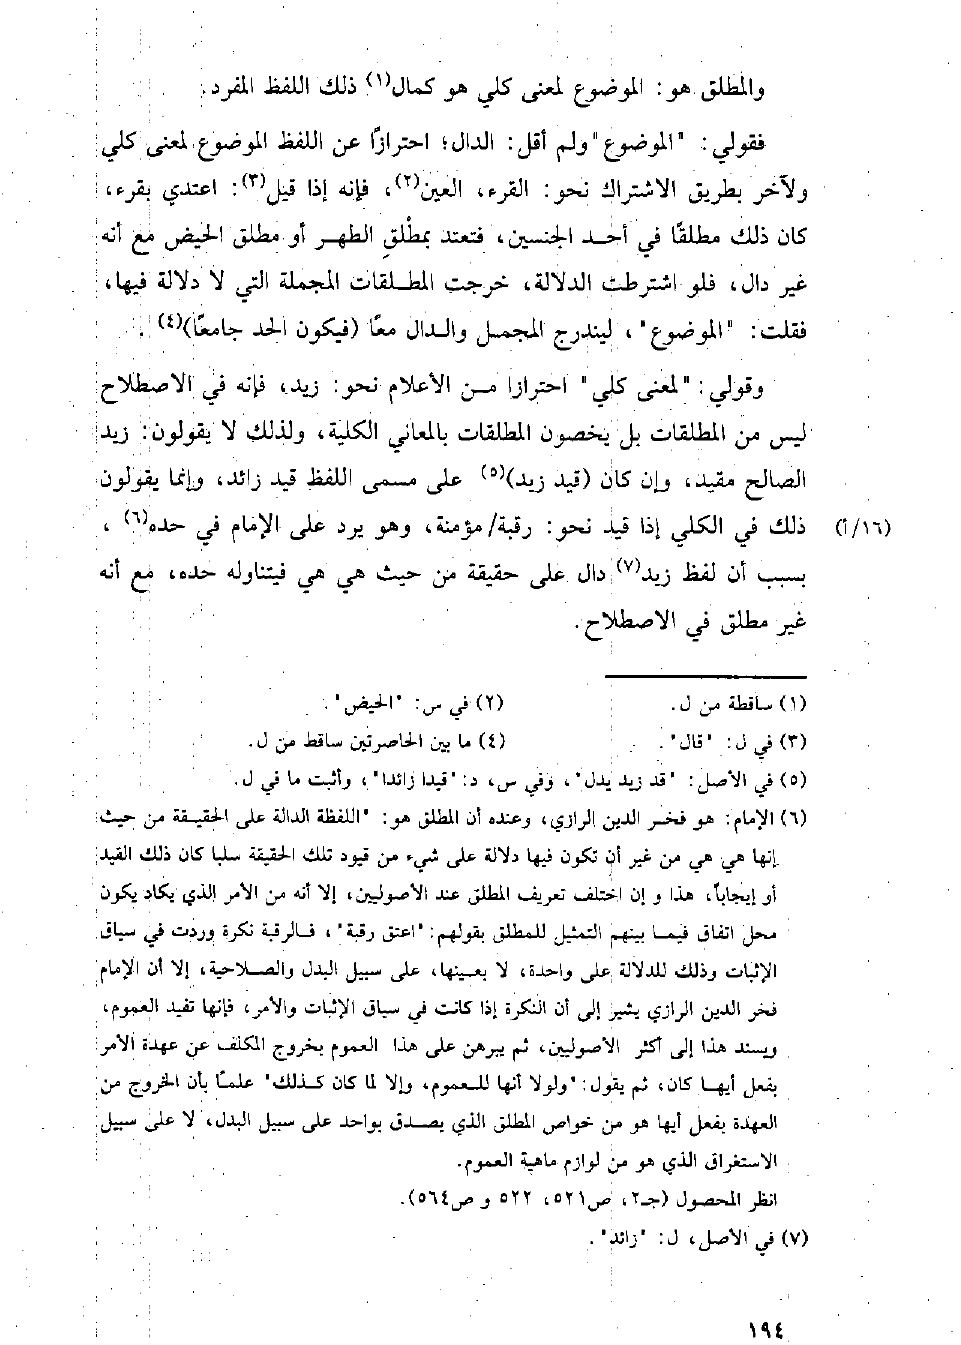 والمطلق هو: الموضوع لمعنى كلي هو كمال(١) ذلك اللفظ المفرد.
فقولي: "الموضوع" ولم أقل: الدال؛ احترازًا عن اللفظ الموضوع لمعنى كلي
ولآخر بطريق الاشتراك نحو: القرء، العين(٢)، فإنه إذا قيل(٣): اعتدي بقرء،
كان ذلك مطلقًا في أحد الجنسين، فتعتد بمطلقِ الطهر أو مطلق الحيض مع أنه
غير دال، فلو اشترطت الدلالة، خرجت المطلقات المجملة التي لا دلالة فيها،
فقلت: "الموضوع"، ليندرج المجمل والدال معًا (فيكون الحد جامعًا)(٤).
وقولي: "لمعنى كلي" احترازا من الأعلام نحو: زيد، فإنه في الاصطلاح
ليس من المطلقات بل يخصون المطلقات بالمعاني الكلية، ولذلك لا يقولون: زيد
الصالح مقيد، وإن كان (قيد زيد)(٥) على مسمى اللفظ قيد زائد، وإنما يقولون
(١٦/أ) ذلك في الكلي إذا قيد نحو: رقبة/مؤمنة، وهو يرد على الإمام في حده(٦)،
بسبب أن لفظ زيد(٧) دال على حقيقة من حيث هي هي فيتناوله حده، مع أنه
غير مطلق في الاصطلاح.
(١) ساقطة من ل. (٢) في س: "الحيض".
(٣) في ل: "قال". (٤) ما بين الحاصرتين ساقط من ل.
(٥) في الأصل: "قد زيد يدل"، وفي س، د: "قيدا زائدا"، وأثبت ما في ل.
(٦) الإمام: هو فخر الدين الرازي، وعنده أن المطلق هو: "اللفظة الدالة على الحقيقة من حيث
إنها هي هي من غير أن تكون فيها دلالة على شيء من قيود تلك الحقيقة سلبا كان ذلك القيد
أو إيجاباً، هذا و إن اختلف تعريف المطلق عند الأصوليين، إلا أنه من الأمر الذي يكاد يكون
محل اتفاق فيما بينهم التمثيل للمطلق بقولهم: "اعتق رقبة"، فالرقبة نكرة وردت في سياق
الإثبات وذلك للدلالة على واحدة، لا بعينها، على سبيل البدل والصلاحية، إلا أن الإمام
فخر الدين الرازي يشير إلى أن النكرة إذا كانت في سياق الإثبات والأمر، فإنها تفيد العموم،
ويسند هذا إلى أكثر الأصوليين، ثم يبرهن على هذا العموم بخروج المكلف عن عهدة الأمر
بفعل أيها كان، ثم يقول: "ولولا أنها للعموم، وإلا لما كان كذلك" علماً بأن الخروج من
العهدة بفعل أيها هو من خواص المطلق الذي يصدق بواحد على سبيل البدل، لا على سبيل
الاستغراق الذي هو من لوازم ماهية العموم.
انظر المحصول (جـ٢، ص٥٢١، ٥٢٢ و ص٥٦٤).
(٧) في الأصل، ل: "زائد".
١٩٤